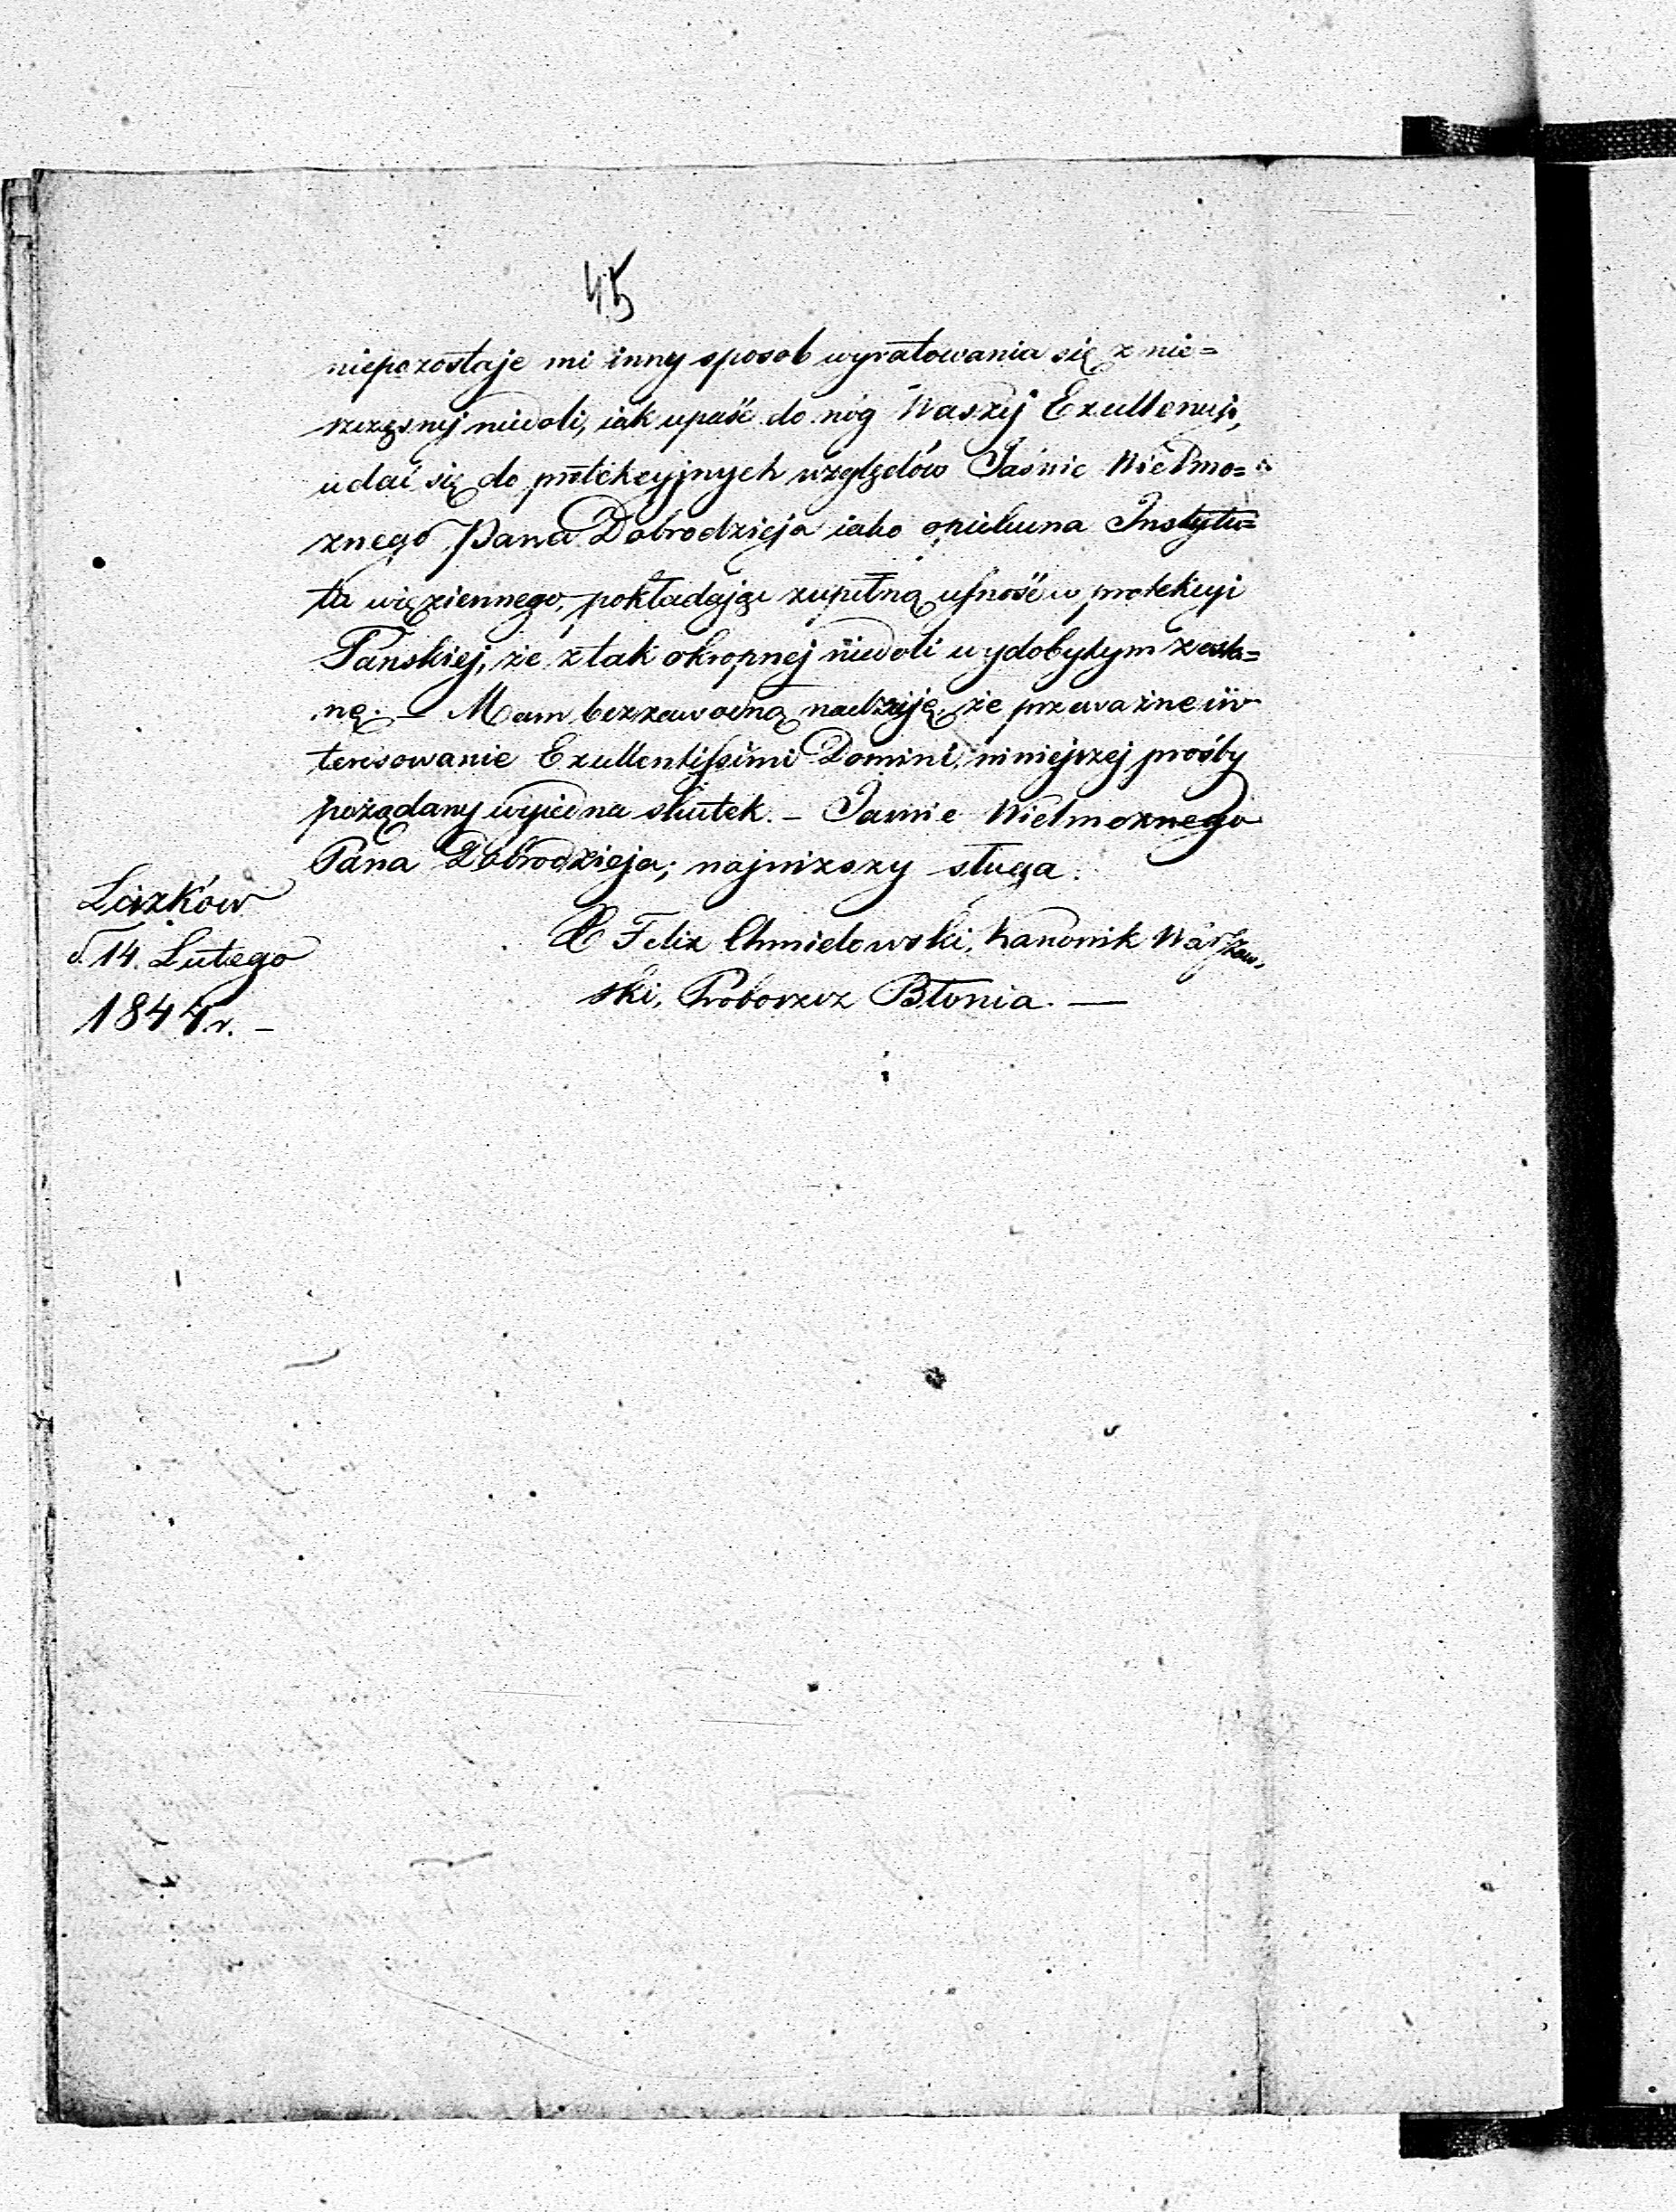 45
niepozostaje mi inny sposob wyratowania się z nie=
szczęsnej niedoli, iak upaść do nóg Waszej Excellencyi,
udać się do protekcyjnych względów Jaśnie Wielmo=
żnego Pana Dobrodzieja iako opiekuna Instytu=
tu więziennego, pokładając zupełną ufność w protekcyi
Pańskiej, że z tak okropnej niedoli wydobytym zosta=
nę. — Mam bezzawodną nadzieję, że przeważne in=
teresowanie Excellentissimi Domini, niniejszej prośby
pożądany wyjedna skutek. — Jaśnie Wielmożnego
Pana Dobrodzieja; najniższy sługa.
X Felix Chmielowski, Kanonik Warszaw=
ski, Proboszcz Błonia. —
Liszków
d. 14. Lutego
1844 r. —